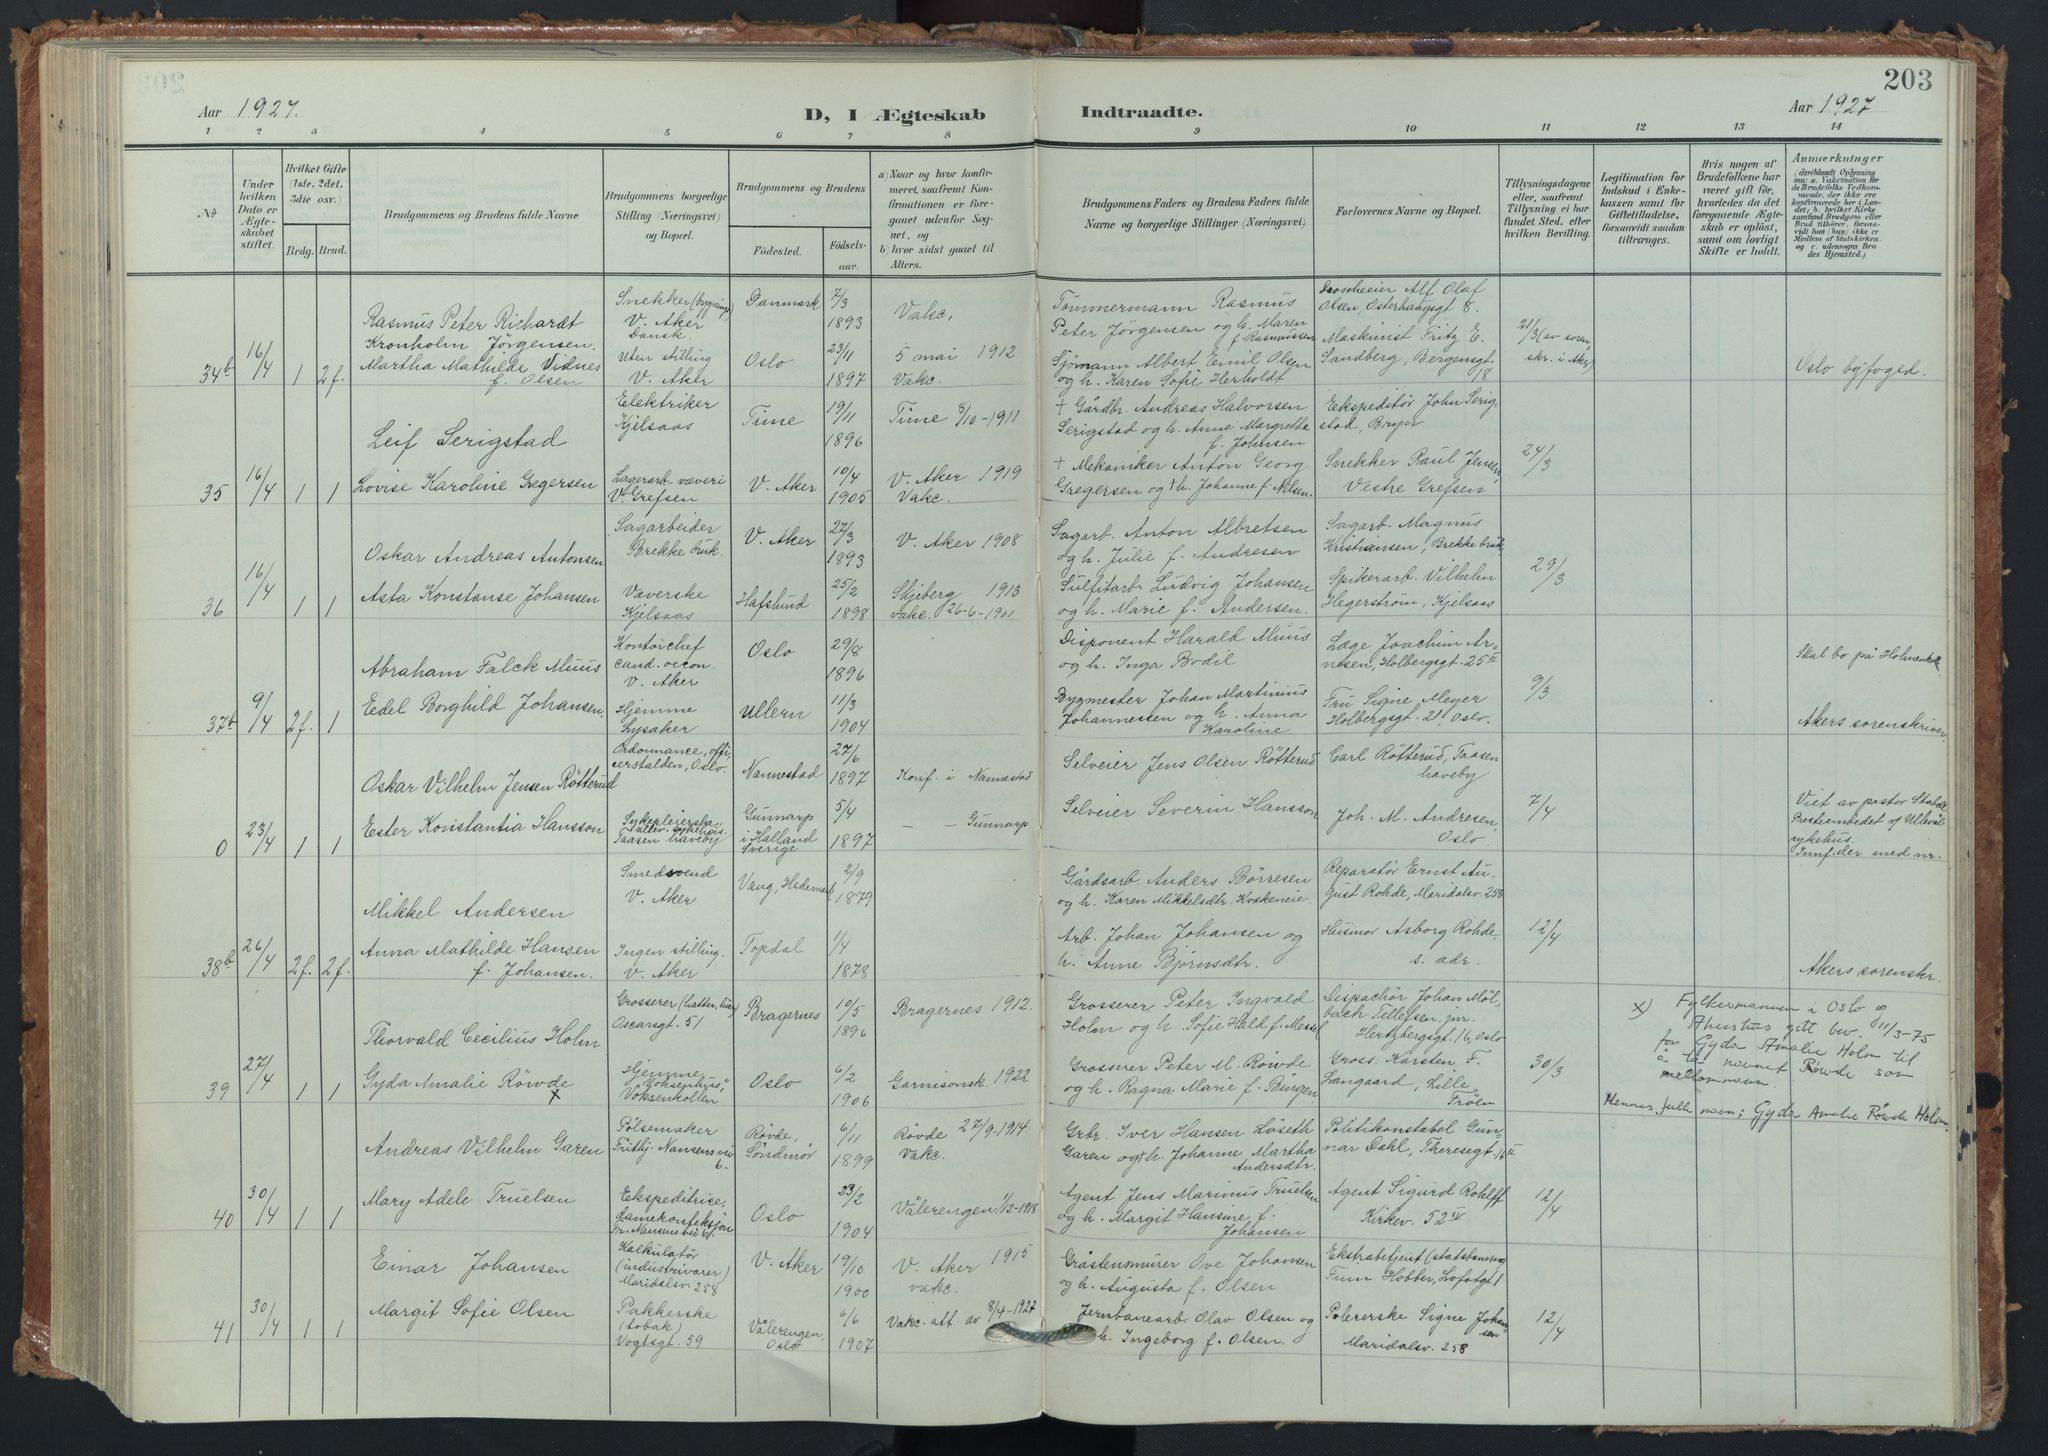 203
Aar 1927.
D, I Ægteskab
Indtraadte.
Aar 1927
1 2 3 4 5 6 7 8 9 10 11 12 13 14
No
Under hvilken Dato er Ægteskabet stiftet.
Hvilket Gifte (1ste, 2det, 3die osv.)
Brdg. Brud.
Brudgommens og Brudens fulde Navne
Brudgommens borgerlige Stilling (Næringsvei) og Bopæl.
Brudgommens og Brudens
Födested.
Födselsaar.
a) Naar og hvor konfirmeret, saafremt Konfirmationen er foregaaet udenfor Sognet, og
b) hvor sidst gaaet til Alters.
Brudgommens Faders og Brudens Faders fulde Navne og borgerlige Stillinger (Næringsvei)
Forlovernes Navne og Bopæl.
Tillysningsdagene eller, saafremt Tillysning ei har fundet Sted, efter hvilken Bevilling.
Legitimation for Indskud i Enkekassen samt for Giftetilladelse, forsaavidt saadan tiltrænges.
Hvis nogen af Brudefolkene har været gift før, hvorledes da det foregaaende Ægteskab er oplöst, samt om lovligt Skifte er holdt.
Anmærkninger
(deriblandt Oplysning om: a. Vaccination for de Brudefolks Vedkommende, der ikke ere konfirmerede her i Landet; b. hvilket Kirkesamfund Brudgom eller Brud tilhører, forsaavidt han (hun) ikke er Medlem af Statskirken, og c. udensogns Brudes Hjemsted.)
34b 16/4 1 2f.
Rasmus Peter Richardt
Kronholm Jørgensen.
Snekker (bygnings)
V. Aker
Dansk.
Danmark
7/3 1893
Vakc.
Tömmermann Rasmus
Peter Jørgensen og h. Maren
f. Rasmussen
Droscheeier Alf Olaf
Olsen, Osterhaugsgt 8.
Martha Mathilde Vidnes
f. Olsen
Uten stilling
V. Aker
Oslo
23/11 1897
5 mai 1912
Vakc.
Sjømann Albert Emil Olsen
og h. Karen Sofie Herholdt
Maskinist Fritz E.
Sandberg, Bergensgt.
18
21/3 (av sorenskr. i Aker)
Oslo byfoged.
35 16/4 1 1
Leif Serigstad
Elektriker
Kjelsaas
Time
19/11 1896
Time 8/10-1911
+ Gårdbr. Andreas Halvorsen
Serigstad og h. Anne Margrethe
f. Johnsen
Ekspeditör John Serigstad, Bryn
Lovise Karoline Gregersen
Lagerarb. væveri
V. Grefsen
V. Aker
10/4 1905
V. Aker 1919
Vakc.
+ Mekaniker Anton Georg
Gregersen og +h. Johanne f. Nilsen.
Snekker Paul Jensen,
Vestre Grefsen
24/3
36 16/4 1 1
Oskar Andreas Antonsen
Sagarbeider
Brekke bruk.
V. Aker
27/3 1893
V. Aker 1908
Sagarb. Anton Albretsen
og h. Julie f. Andresen
Sagarb. Magnus
Kristiansen, Brekke bruk
Asta Konstanse Johansen
Væverske
Kjelsaas
Hafslund
25/2 1898
Skjeberg 1913
vakc. 26-6-1901
Sulfitarb. Ludvig Johansen
og h. Marie f. Andersen.
Spikerarb. Vilhelm
Hegerstrøm, Kjelsaas
29/3
37b 9/4 2f. 1
Abraham Falck Muus
Kontorchef
cand. oecon.
V. Aker
Oslo
29/8 1896
Disponent Harald Muus
og h. Inga Bodil
Læge Joachim Arnesen, Holbergsgt. 25 II
Skal bo på Holmenkoll.
Eedel Borghild Johansen.
Hjemme
Lysaker
Ullern
11/3 1904
Bygmester Johan Martinius
Johannessen og h. Anna
Karoline
Fru Signe Meyer
Holbergsgt. 21 Oslo.
9/3
Akers sorenskriver.
0 23/4 1 1
Oskar Vilhelm Jensen Røtterud
Ordonnance, officerstalden, Oslo.
Nannestad
27/6 1897
Konf. i Nannestad
Selveier Jens Olsen Røtterud
Carl Røtterud, Taasen
haveby
Ester Konstantia Hansson
Sykepleierske
Ullev. sykehus.
Taasen haveby
Gunnarp
i Halland
Sverige
5/4 1897
— — Gunnarp
Selveier Severin Hansson
Joh. M. Andresen,
Oslo
7/4
Viet av pastor Stabell
Presteembedet v/ Ullevål
sykehus.
Innf. der med nr.
38b 26/4 2f. 2f.
Mikkel Andersen
Smedsvend
V. Aker
Vang, Hedemark
2/9 1879
Gårdsarb. Anders Börresen
og h. Karen Mikkelsdtr. Kvækeneie
Reparatør Ernst August Rohde, Maridalsv. 258
Anna Mathilde Hansen
f. Johansen.
Ingen stilling.
V. Aker
Topdal
1/4 1878
Arb. Johan Johansen og
h. Anne Bjørnsdtr.
Husmor Asborg Rohde.
s. adr.
12/4
Akers sorenskr.
39 27/4 1 1
Thorvald Cecilius Holm
Grosserer (hatter, huer)
Oscarsgt. 51
Bragernes
10/5 1896
Bragernes 1912.
Grosserer Peter Ingvald
Holm og h. Sofie Hald f. Messel
Dispachör Johan Mölbach Tellefsen jnr.
Hertzbergsgt. 16, Oslo
Gyda Amalie Röwde x
Hjemme
"Voksenhus",
Voksenkollen
Oslo
6/2 1906
Garnisonsk. 1922
Grosserer Peter M. Röwde
og h. Ragna Marie f. Bingen
Gross. Karsten F.
Langaard, Lille
Frøen
30/3
x) Fylkesmannen i Oslo og
Akershus gitt bev. 11/3-75
for Gyda Amalie Holm til
å ta navnet Röwde som
mellomnavn.
Hennes fulle navn: Gyda Amalie Röwde Holm.
40 30/4 1 1
Andreas Vilhelm Garen
Pölsemaker
Frithj. Nansens vei
6.
Røvde,
Søndmør
6/11 1899
Røvde 27/9-1914.
Vakc.
Grbr. Iver Hansen Løseth
Garen og +h. Johanne Martha
Andersdtr.
Politikonstabel Gunnar Dahl, Theresegt. 16 II
Mary Adele Truelsen
Ekspeditrice,
damekonfeksjon
Fr. Nansens vei 6.
Oslo
23/2 1904
Vålerengen 1/12-1918
Agent Jens Marinus Truelsen
og h. Margit Hansine f.
Johansen
Agent Sigurd Rohlff
Kirkev. 52 IV
12/4
41 30/4 1 1
Einar Johansen
Kalkulatör
(industrivarer)
Maridalsv. 258
V. Aker
19/10 1900
V. Aker 1915
vakc.
Gråstensmurer Ove Johansen
og h. Augusta f. Olsen
Ekstrabetjent (statsbanene)
Finn Hobber, Lofotgt 1
Margit Sofie Olsen
Pakkerske
(tobak)
Vogtsgt. 59
Vålerengen,
Oslo
6/6 1907
Vakc. att. av 8/4-1927
Jernbanearb. Olav Olsen og
h. Ingeborg f. Olsen.
Polererske Signe Johansen
Maridalsv. 258
12/4